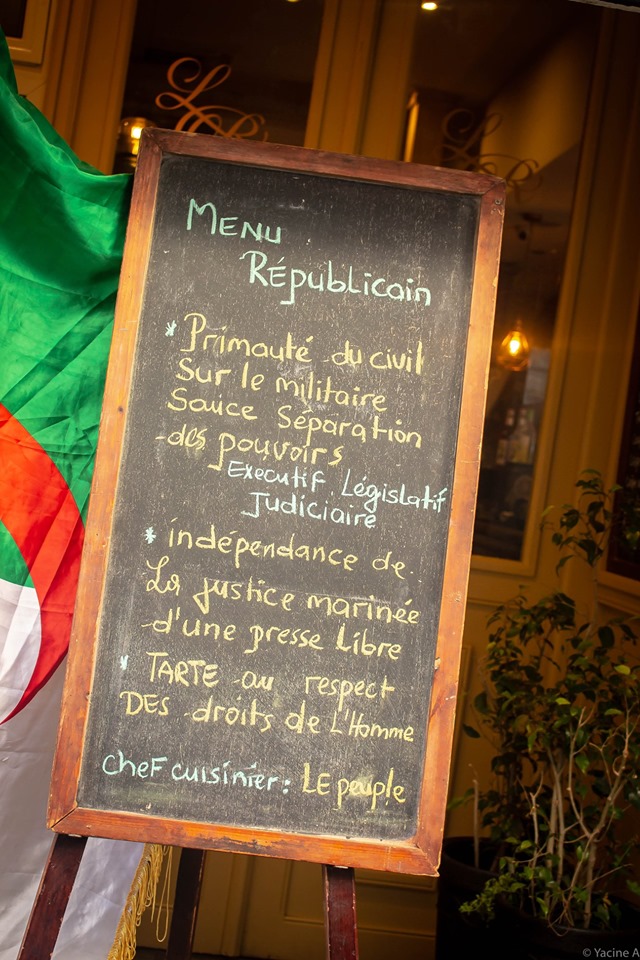 MENU
Républicain
* Primauté du civil
Sur le militaire
Sauce Séparation
des pouvoirs
Executif. Législatif
Judiciaire
* indépendance de
La justice marinée
d'une presse Libre
* TARTE au respect
DES droits de L'Homme
cheF cuisinier: LE peuple
© Yacine A